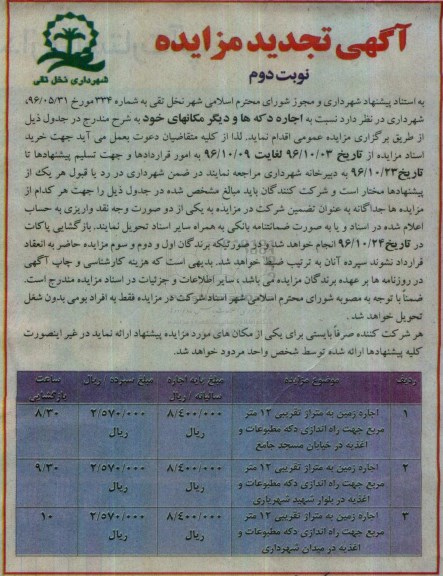 آگهی تجدید مزایده
نوبت دوم
شهرداری نخل تقی
به استناد پیشنهاد شهرداری و مجوز شورای محترم اسلامی شهر نخل تقی به شماره ۳۳۴ مورخ ۹۶/۰۵/۳۱،
شهرداری در نظر دارد نسبت به اجاره دکه ها و دیگر مکانهای خود به شرح مندرج در جدول ذیل
از طریق برگزاری مزایده عمومی اقدام نماید. لذا از کلیه متقاضیان دعوت بعمل می آید جهت خرید
اسناد مزایده از تاریخ ۹۶/۱۰/۰۳ لغایت ۹۶/۱۰/۰۹ به امور قراردادها و جهت تسلیم پیشنهادها تا
تاریخ ۹۶/۱۰/۲۳ به دبیرخانه شهرداری مراجعه نمایند در ضمن شهرداری در رد یا قبول هر یک از
پیشنهادها مختار است و شرکت کنندگان باید مبالغ مشخص شده در جدول ذیل را جهت هر کدام از
مزایده ها جداگانه به عنوان تضمین شرکت در مزایده به یکی از دو صورت وجه نقد واریزی به حساب
اعلام شده در اسناد و یا به صورت ضمانتنامه بانکی به همراه سایر اسناد تحویل نمایند. بازگشایی پاکات
در تاریخ ۹۶/۱۰/۲۴ انجام خواهد شد و در صورتیکه برندگان اول و دوم و سوم مزایده حاضر به انعقاد
قرارداد نشوند سپرده آنان به ترتیب ضبط خواهد شد. بدیهی است که هزینه کارشناسی و چاپ آگهی
در روزنامه ها بر عهده برندگان مزایده می باشد، سایر اطلاعات و جزئیات در اسناد مزایده مندرج است.
ضمناً با توجه به مصوبه شورای محترم اسلامی شهر اسناد شرکت در مزایده فقط به افراد بومی بدون شغل
تحویل خواهد شد.
هر شرکت کننده صرفاً بایستی برای یکی از مکان های مورد مزایده پیشنهاد ارائه نماید در غیر اینصورت
کلیه پیشنهادها ارائه شده توسط شخص واحد مردود خواهد شد.
ردیف موضوع مزایده مبلغ پایه اجاره سالیانه / ریال مبلغ سپرده ریال ساعت بازگشایی
۱ اجاره زمین به متراژ تقریبی ۱۲ متر ۸/۴۰۰/۰۰۰ ۲/۵۷۰/۰۰۰ ۸/۳۰
مربع جهت راه اندازی دکه مطبوعات و ریال ریال
اغذیه در خیابان مسجد جامع
۲ اجاره زمین به متراژ تقریبی ۱۲ متر ۸/۴۰۰/۰۰۰ ۲/۵۷۰/۰۰۰ ۹/۳۰
مربع جهت راه اندازی دکه مطبوعات و ریال ریال
اغذیه در بلوار شهید شهریاری
۳ اجاره زمین به متراژ تقریبی ۱۲ متر ۸/۴۰۰/۰۰۰ ۲/۵۷۰/۰۰۰ ۱۰
مربع جهت راه اندازی دکه مطبوعات و ریال ریال
اغذیه در میدان شهرداری